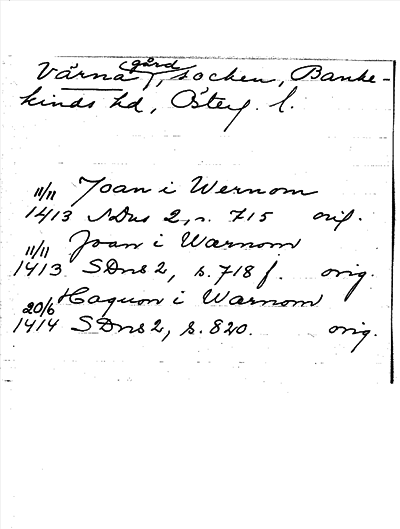 Värna (gård), socken, Banke-
kinds hd, Österg. l.
11/11 Joan i Wernom
1413 SDns 2, s. 715 orig.
11/11 Joan i Warnom
1413 SDns 2, s. 718 f. orig.
20/6 Haquon i Warnom
1414 SDns 2, s. 820. orig.